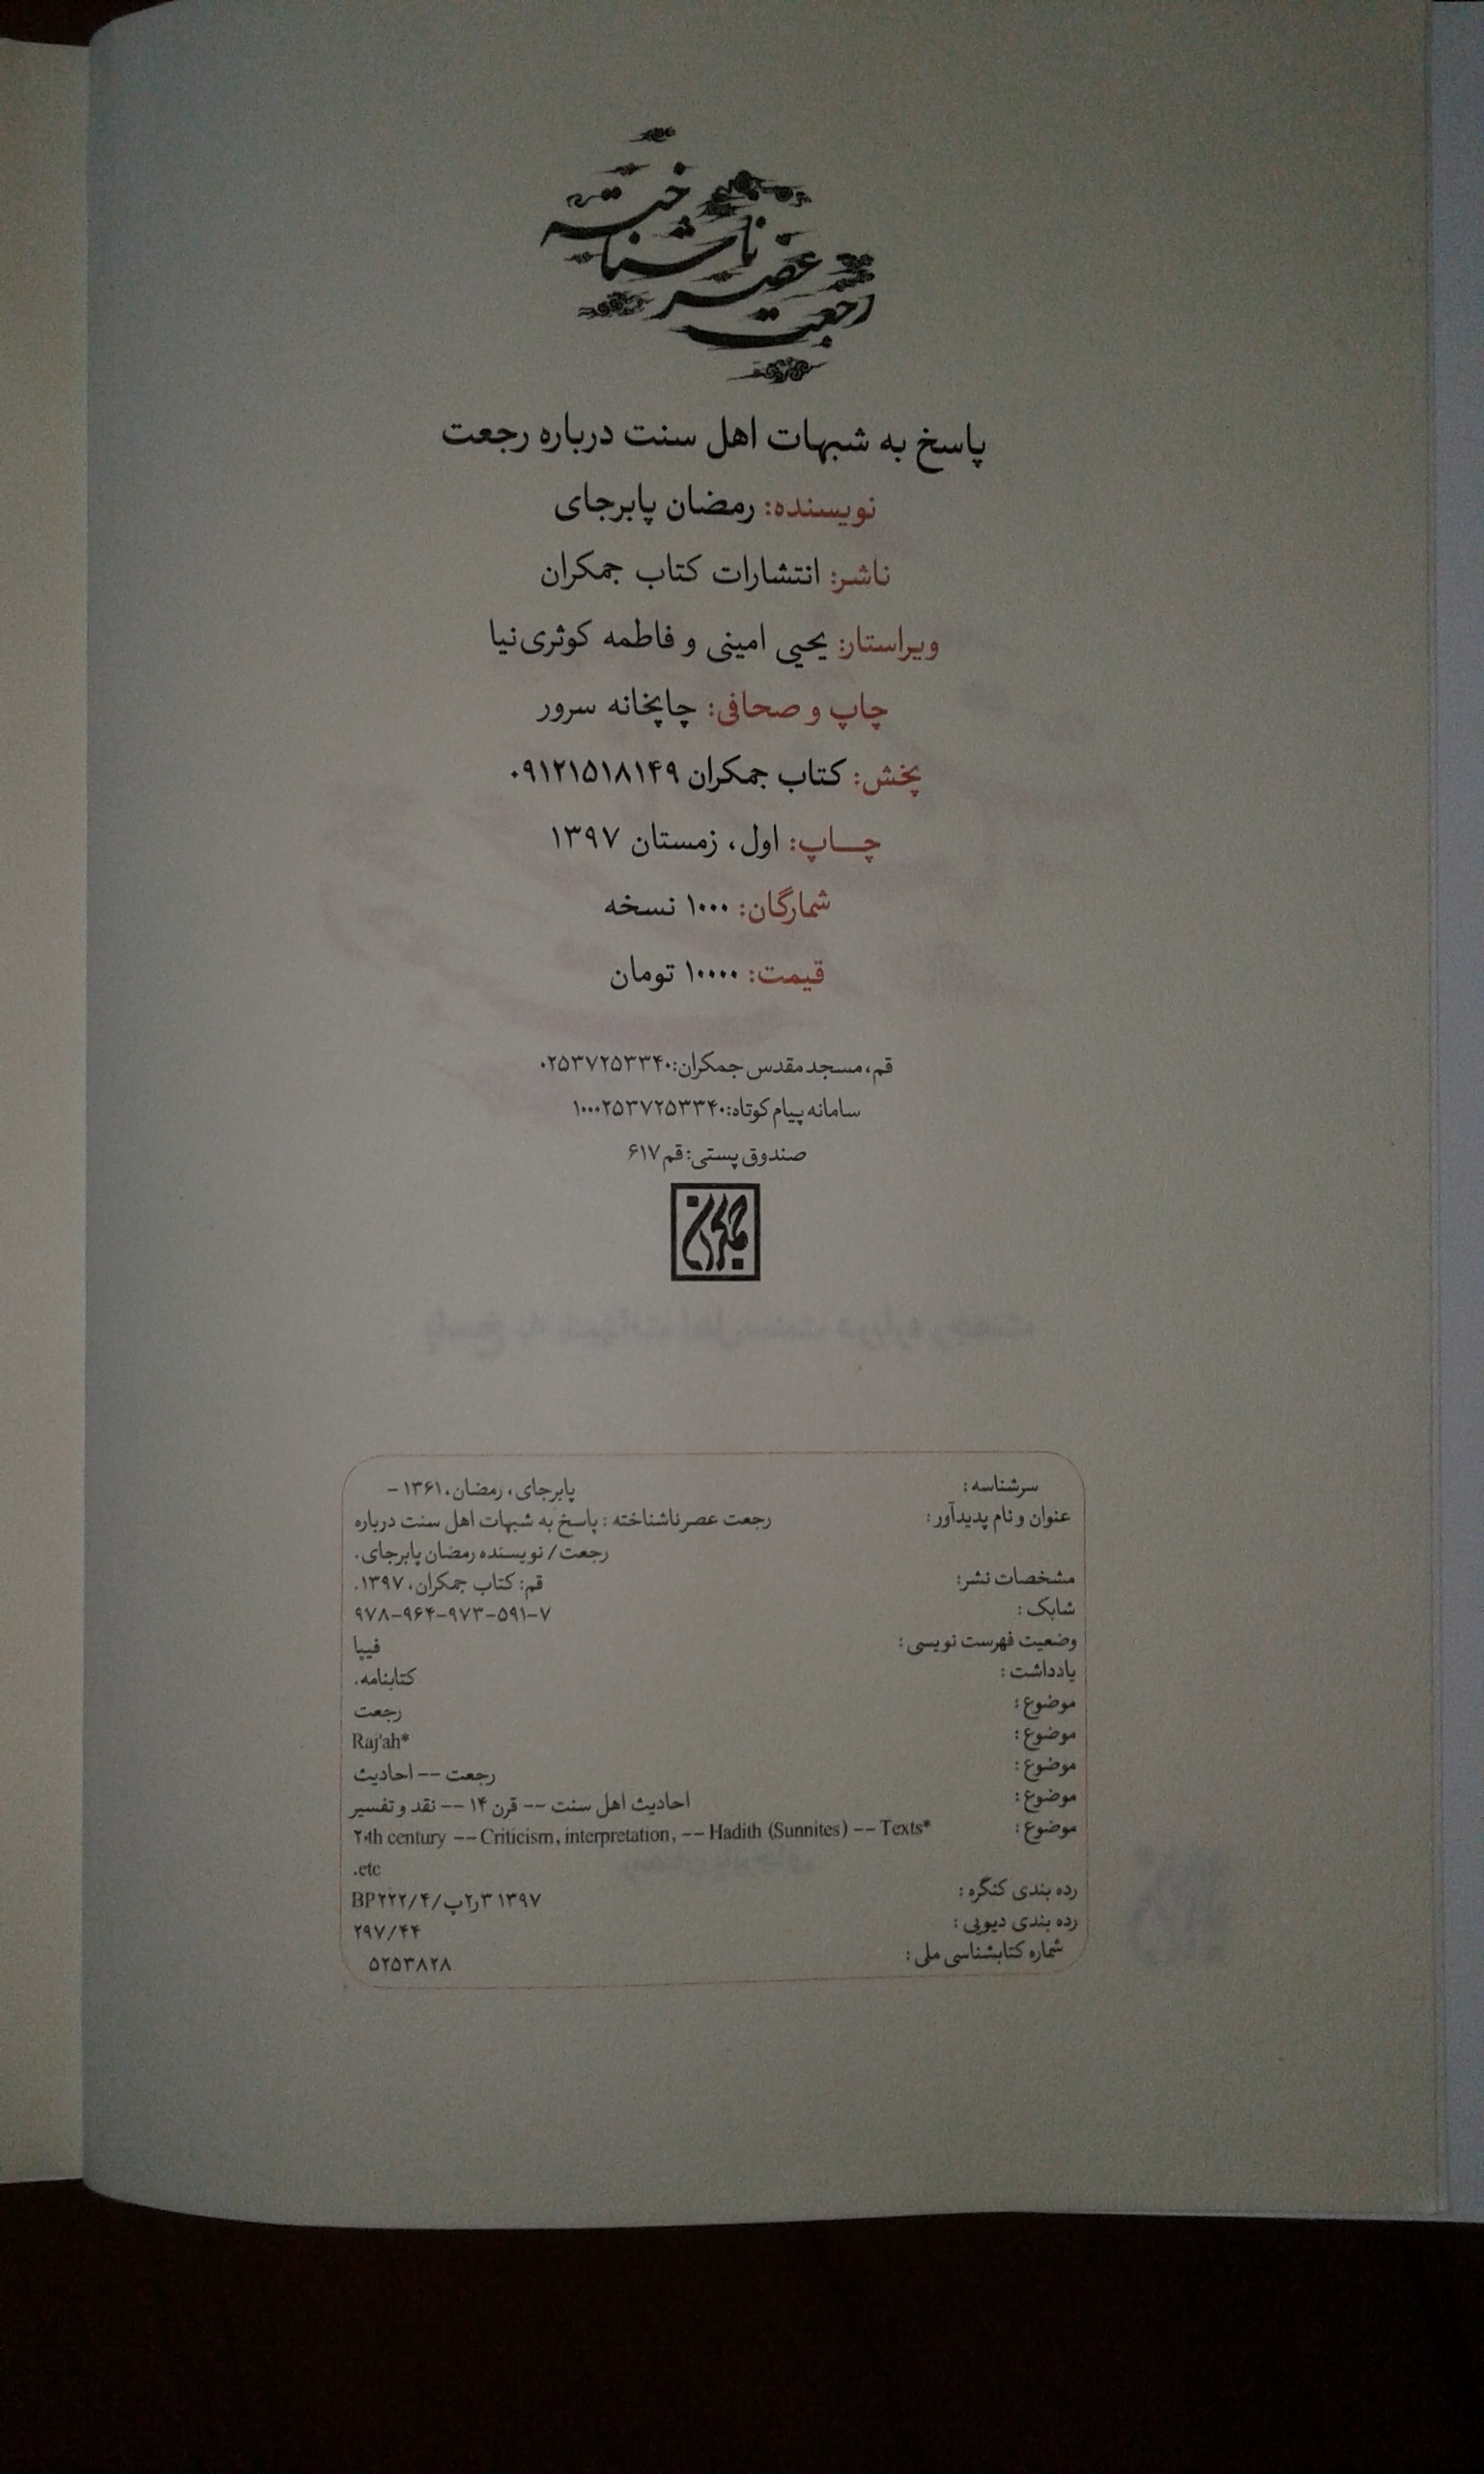 رجعت
عصر
ناشناخته
پاسخ به شبهات اهل سنت درباره رجعت
نویسنده: رمضان پابرجای
ناشر: انتشارات کتاب جمکران
ویراستار: یحیی امینی و فاطمه کوثری‌نیا
چاپ و صحافی: چاپخانه سرور
پخش: کتاب جمکران ۰۹۱۲۱۵۱۸۱۴۹
چـــاپ: اول، زمستان ۱۳۹۷
شمارگان: ۱۰۰۰ نسخه
قیمت: ۱۰۰۰۰ تومان
قم، مسجد مقدس جمکران:۰۲۵۳۷۲۵۳۳۴۰
سامانه پیام کوتاه:۱۰۰۰۲۵۳۷۲۵۳۳۴۰
صندوق پستی: قم ۶۱۷
جمکران
سرشناسه: پابرجای، رمضان، ۱۳۶۱ -
عنوان و نام پدیدآور: رجعت عصر ناشناخته : پاسخ به شبهات اهل سنت درباره
رجعت/ نویسنده رمضان پابرجای.
مشخصات نشر: قم: کتاب جمکران، ۱۳۹۷.
شابک: ۹۷۸-۹۶۴-۹۷۳-۵۹۱-۷
وضعیت فهرست نویسی: فیپا
یادداشت: کتابنامه.
موضوع: رجعت
موضوع: Raj'ah*
موضوع: رجعت -- احادیث
موضوع: احادیث اهل سنت -- قرن ۱۴ -- نقد و تفسیر
موضوع: ۲۰th century -- Criticism, interpretation, -- Hadith (Sunnites) -- Texts*
.etc
رده بندی کنگره: BP۲۲۲/۴/پ۲ر۳ ۱۳۹۷
رده بندی دیویی: ۲۹۷/۴۴
شماره کتابشناسی ملی: ۵۲۵۳۸۲۸